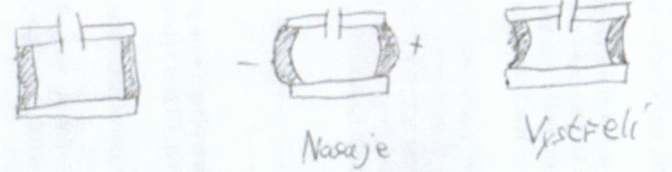 - +
Nasaje
Vystřelí